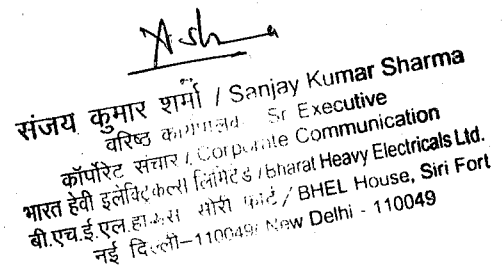 Asha
संजय कुमार शर्मा / Sanjay Kumar Sharma
वरिष्ठ Sr Executive
कॉर्पोरेट संचार / Corporate Communication
भारत हेवी इलेक्ट्रिकल्स लिमिटेड / Bharat Heavy Electricals Ltd.
बी.एच.ई.एल. / BHEL House, Siri Fort
नई दिल्ली-110049/ New Delhi - 110049